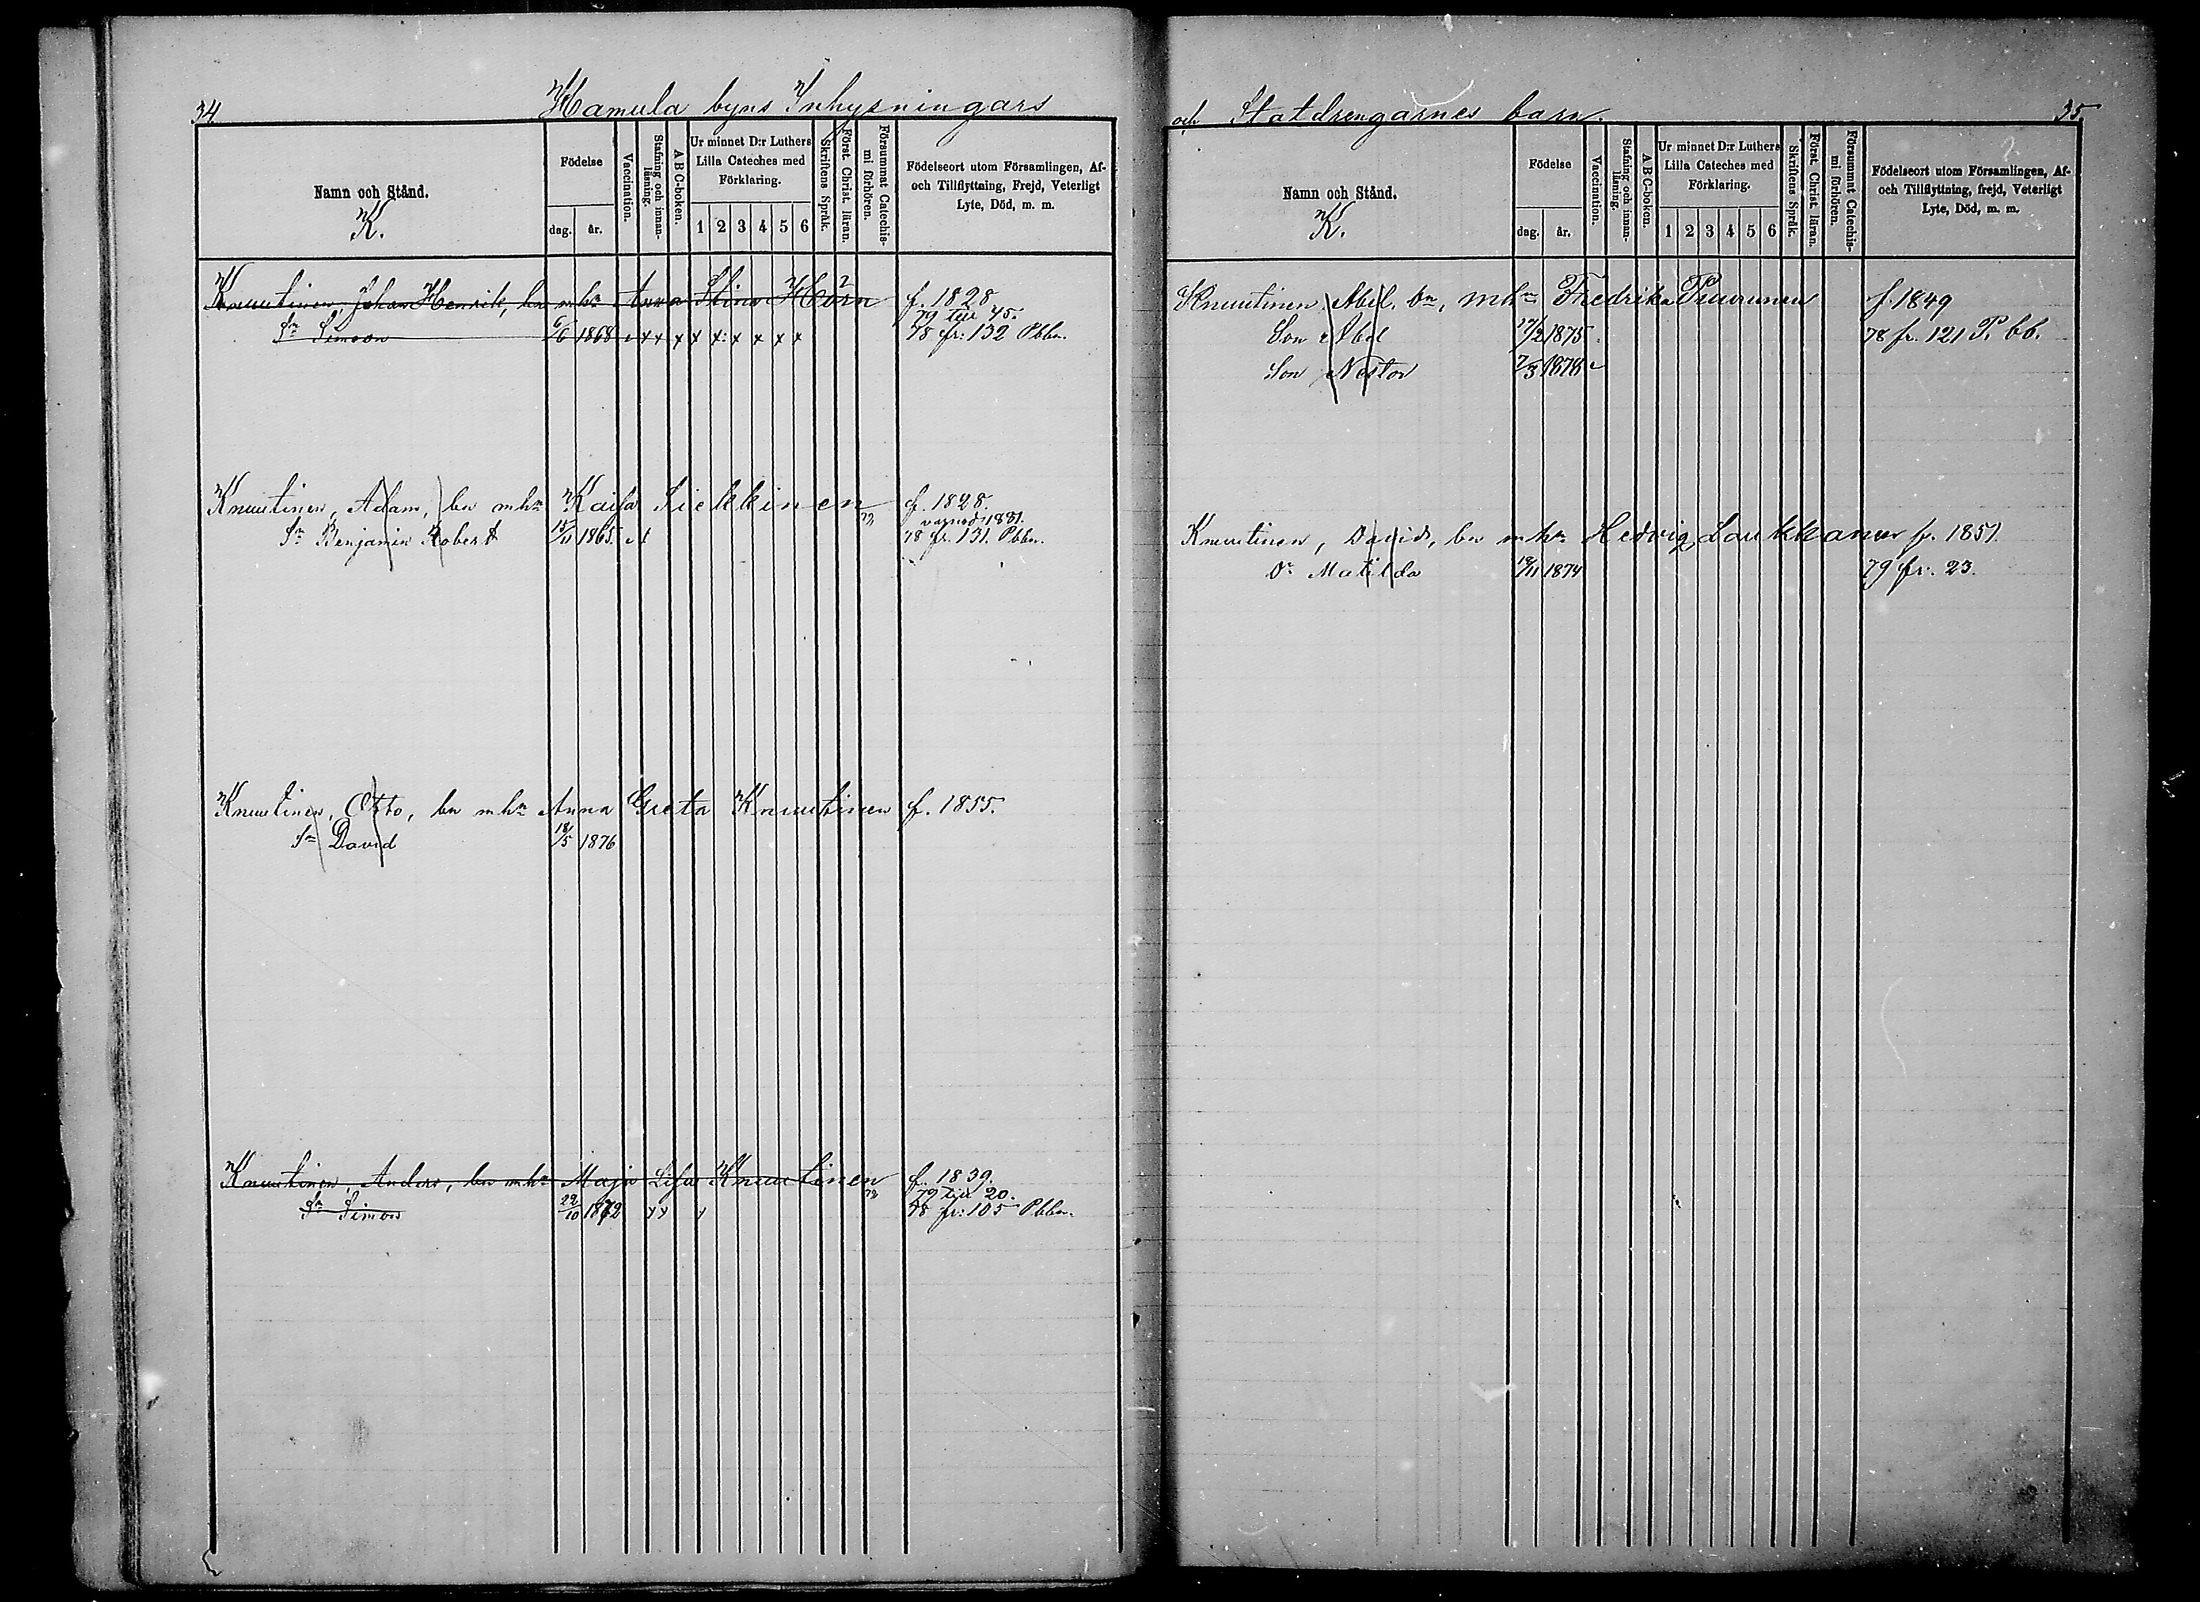 34
Hamula byns Inhysningars
Namn och Stånd.
K.
Födelse
dag.
år.
Vaccination.
Stafning och innan-
läsning.
A B C-boken.
Ur minnet D:r Luthers
Lilla Cateches med
Förklaring.
1 2 3 4 5 6
Skriftens Språk.
Först. Christ. läran.
Försummat Catechis-
mi förhören.
Födelseort utom Församlingen, Af-
och Tillflyttning, Frejd, Veterligt
Lyte, Död, m. m.
Knuutinen, Johan Henrik, bn mhn Anna Stina Horn f. 1828
79 till 45.
Sn Simeon 6/6 1868 x x x x x x x x x 78 fr: 132 Pbbn.
Knuutinen, Adam, bn mhn Kaisa Siekkinen f. 1828.
vuxnad 1881.
Sn Benjamin Robert 15/11 1865 78 fr. 131 Pbbn.
Knuutinen, Otto, bn mhn Anna Greta Knuutinen f. 1855.
Sn David 18/5 1876
Knuutinen, Anders, bn mhn Maja Lisa Knuutinen f. 1839.
79 till 20.
Sn Simon 22/10 1872 78 fr: 105 Pbbn.
och Statdrengarnes barn.
35
Namn och Stånd.
K.
Födelse
dag.
år.
Vaccination.
Stafning och innan-
läsning.
A B C-boken.
Ur minnet D:r Luthers
Lilla Cateches med
Förklaring.
1 2 3 4 5 6
Skriftens Språk.
Först. Christ. läran.
Försummat Catechis-
mi förhören.
Födelseort utom Församlingen, Af-
och Tillflyttning, frejd, Veterligt
Lyte, Död, m. m.
Knuutinen Abel, bn, mhn Fredrika Puurunen f. 1849
Son Abel 17/2 1875 78 fr. 121 P. bb.
Son Nestor 7/3 1878
Knuutinen, David, bn mhn Hedvig Laukkanen f. 1851
Dr Matilda 19/11 1874 79 fr. 23.